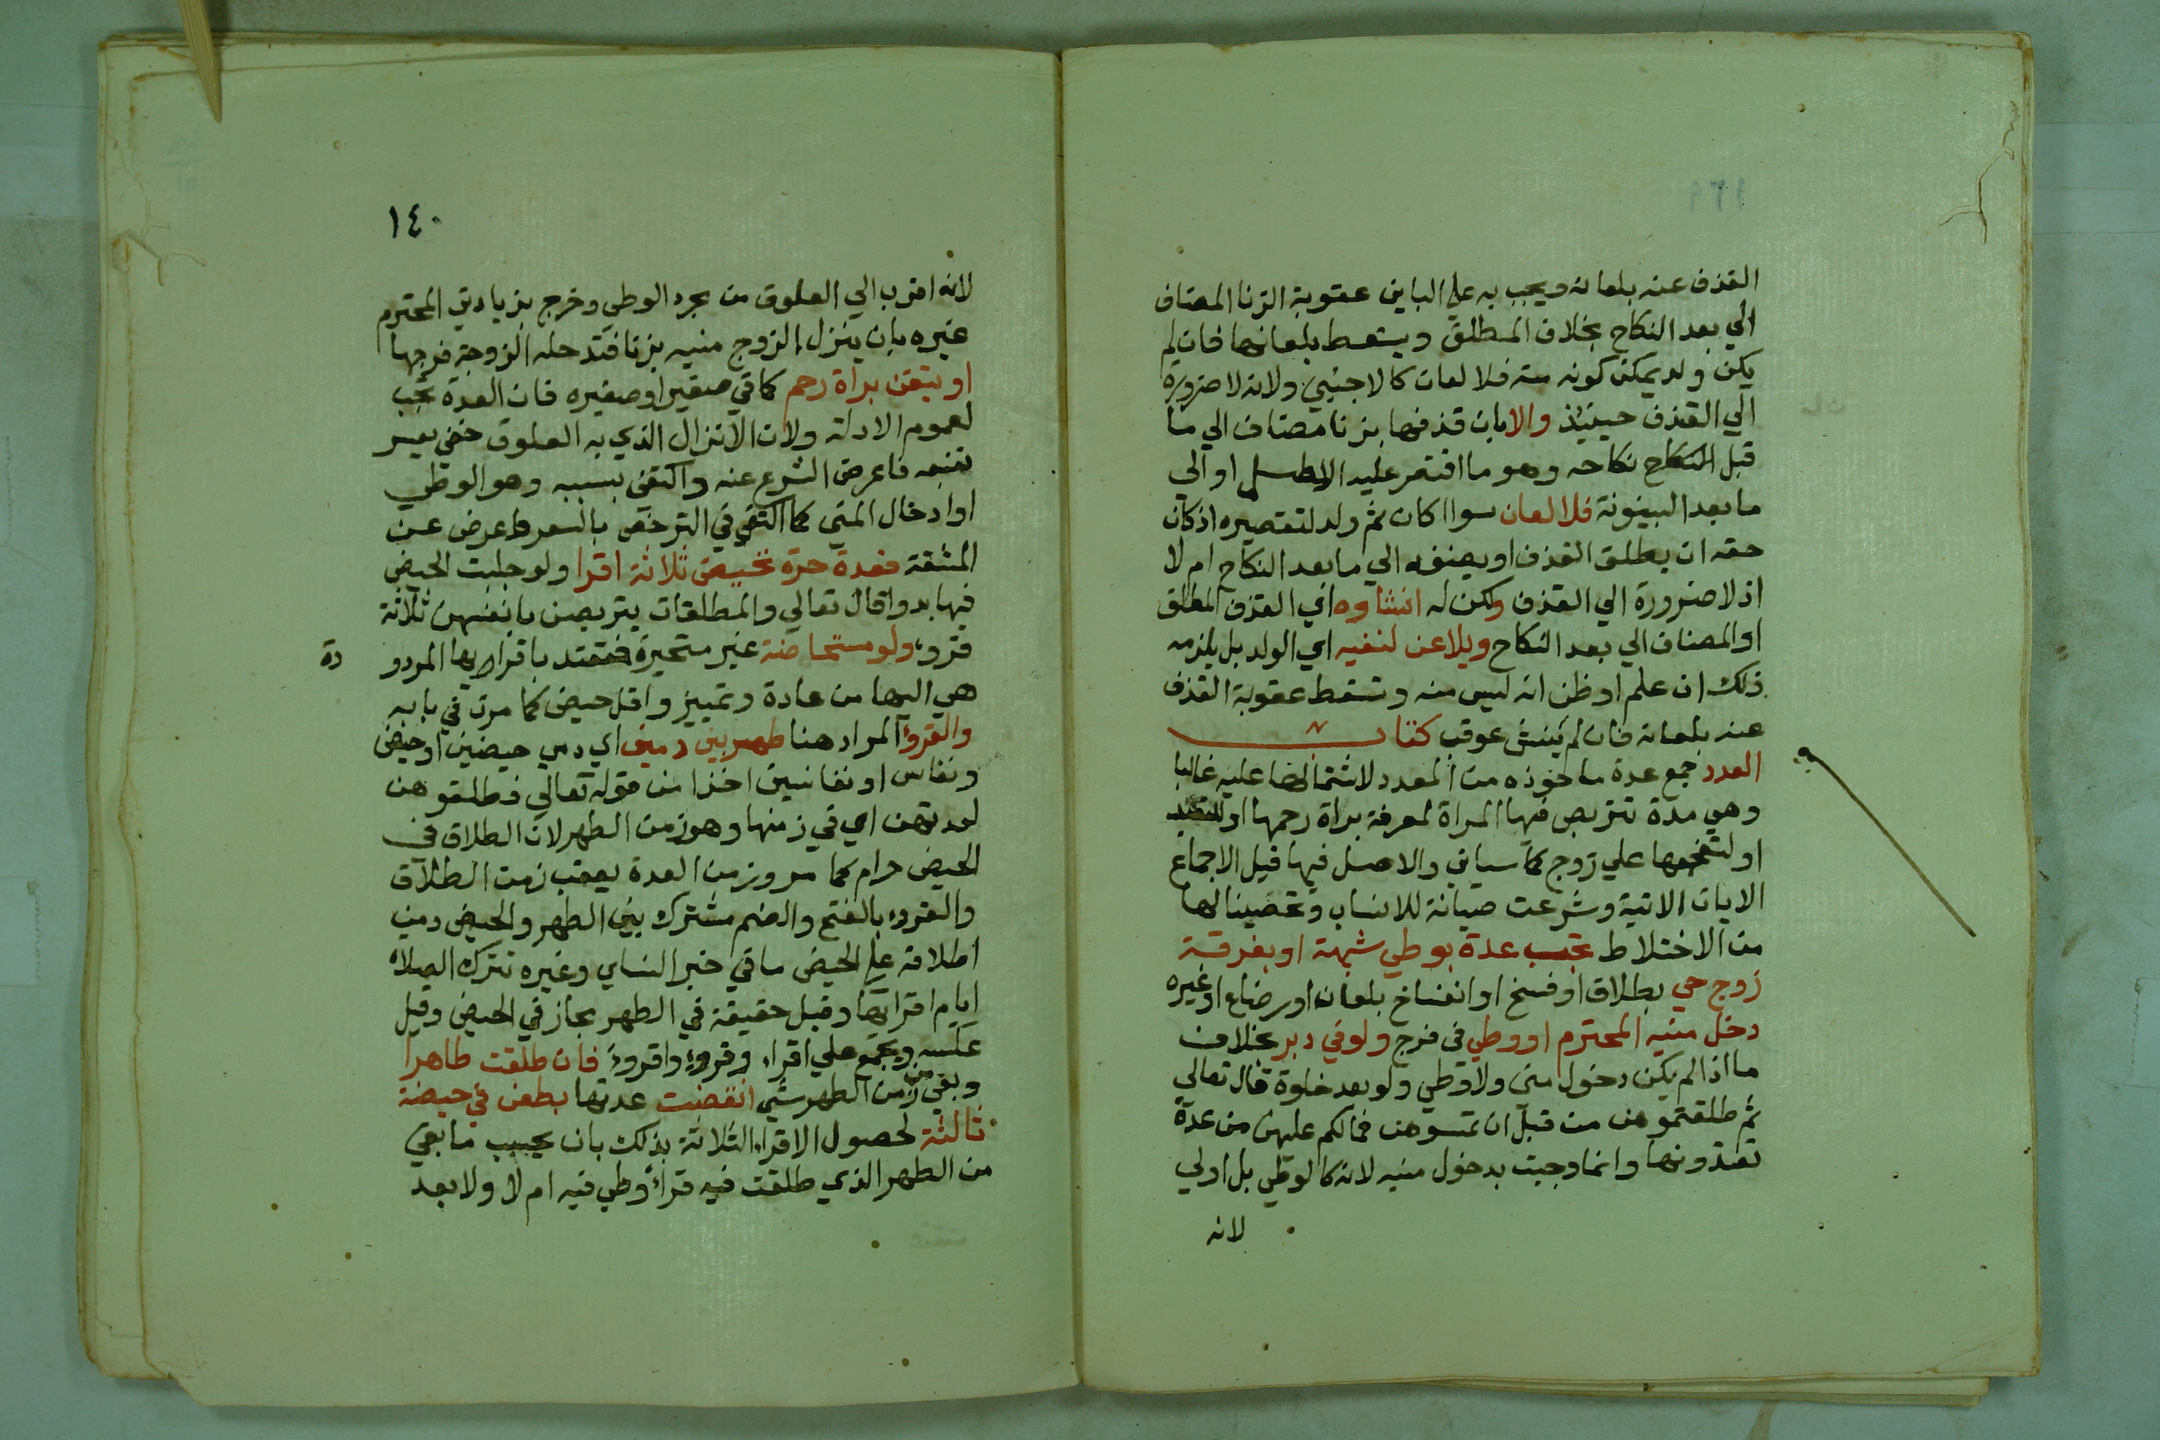 القذف عنه بلعانه ويجب به علي الباين عقوبة الزنا المضاف
الي بعد النكاح بخلاف المطلق ويسقط بلعانها فان لم
يكن ولد يمكن كونه منه فلا لعان كالاجنبي ولانه لا ضرورة
الي القذف حينيذ والا بان قذفها بزنا مضاف الي ما
قبل النكاح نكاحه وهو ما اقتصر عليه الاصل او الي
ما بعد البينونة فلا لعان سوا كان ثم ولد لتقصيره اذ كان
حقه ان يطلق القذف او يضيفه الي ما بعد النكاح ام لا
اذ لا ضرورة الي القذف ولكن له انشاوه اي القذف المطلق
او المضاف الي بعد النكاح ويلاعن لنفيه اي الولد بل يلزمه
ذلك ان علم او ظن انه ليس منه وتسقط عقوبة القذف
عنه بلعانه فان لم ينش عوقب كتاب
العدد جمع عدة ماخوذه من العدد لاشتمالها عليه غالبا
وهي مدة تتربص فيها المراة لمعرفة براة رحمها او للتعبد
او لتفجعها علي زوج كما سياتي والاصل فيها قبل الاجماع
الايات الاتية وشرعت صيانة للانساب وتحصينا لها
من الاختلاط تجب عدة بوطي شبهة او بفرقة
زوج حي بطلاق او فسخ او انفساخ بلعان او رضاع او غيره
دخل منيه المحترم او وطي في فرج ولو في دبر بخلاف
ما اذا لم يكن دخول مني ولا وطي ولو بعد خلوة قال تعالي
ثم طلقتموهن من قبل ان تمسوهن فما لكم عليهن من عدة
تعتدونها وانما وجبت بدخول منيه لانه كالوطي بل اولي
لانه
١٤٠
لانه اقرب الي العلوق من مجرد الوطي وخرج بزيادتي المحترم
غيره بان ينزل الزوج منيه بزنا فتدخله الزوجة فرجها
او تيقن براة رحم كما في صغير او صغيره فان العدة تجب
لعموم الادلة ولان الانزال الذي به العلوق خفي يعسر
تتبعه فاعرض الشرع عنه واكتفي بسببه وهو الوطي
او ادخال المني كما اكتفي في الترخص بالسفر واعرض عن
المشقة فعدة حرة تحيض ثلاثة اقرا ولو جلبت الحيض
فيها بدوا قال تعالي والمطلقات يتربصن بانفسهن ثلاثة
قروء ولو مستحاضة غير متحيرة فتعتد باقرايها المردو
دة
هي اليها من عادة وتمييز واقل حيض كما مر في بابه
والقرؤ المراد هنا طهر بين دمين اي دمي حيضين او حيض
ونفاس او نفاسين اخذا من قوله تعالي فطلقوهن
لعدتهن اي في زمنها وهو زمن الطهر لان الطلاق في
الحيض حرام كما مر وزمن العدة يعقب زمن الطلاق
والقرؤ بالفتح والضم مشترك بين الطهر والحيض ومن
اطلاقه علي الحيض ما في خبر النساي وغيره تترك الصلاة
ايام اقرايها وقيل حقيقة في الطهر مجاز في الحيض وقيل
عكسه ويجمع علي اقراء وقروء واقروء فان طلقت طاهرا
وبقي من زمن الطهر شي انقضت عدتها بطعن في حيضة
ثالثة لحصول الاقراء الثلاثة بذلك بان يحسب ما بقي
من الطهر الذي طلقت فيه قرأ وطي فيه ام لا ولا بعد